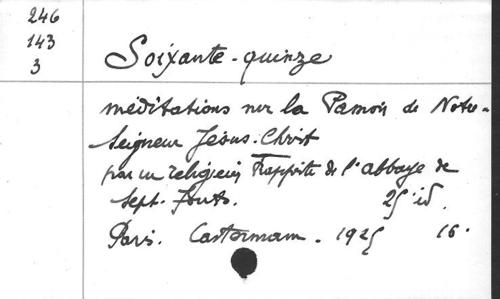 246
143
3
Soixante-quinze
méditations sur la Passion de Notre-
Seigneur Jésus-Christ
par un religieux Trappiste de l'abbaye de
Sept-Fonts. 25 éd.
Paris. Casterman. 1925 16°